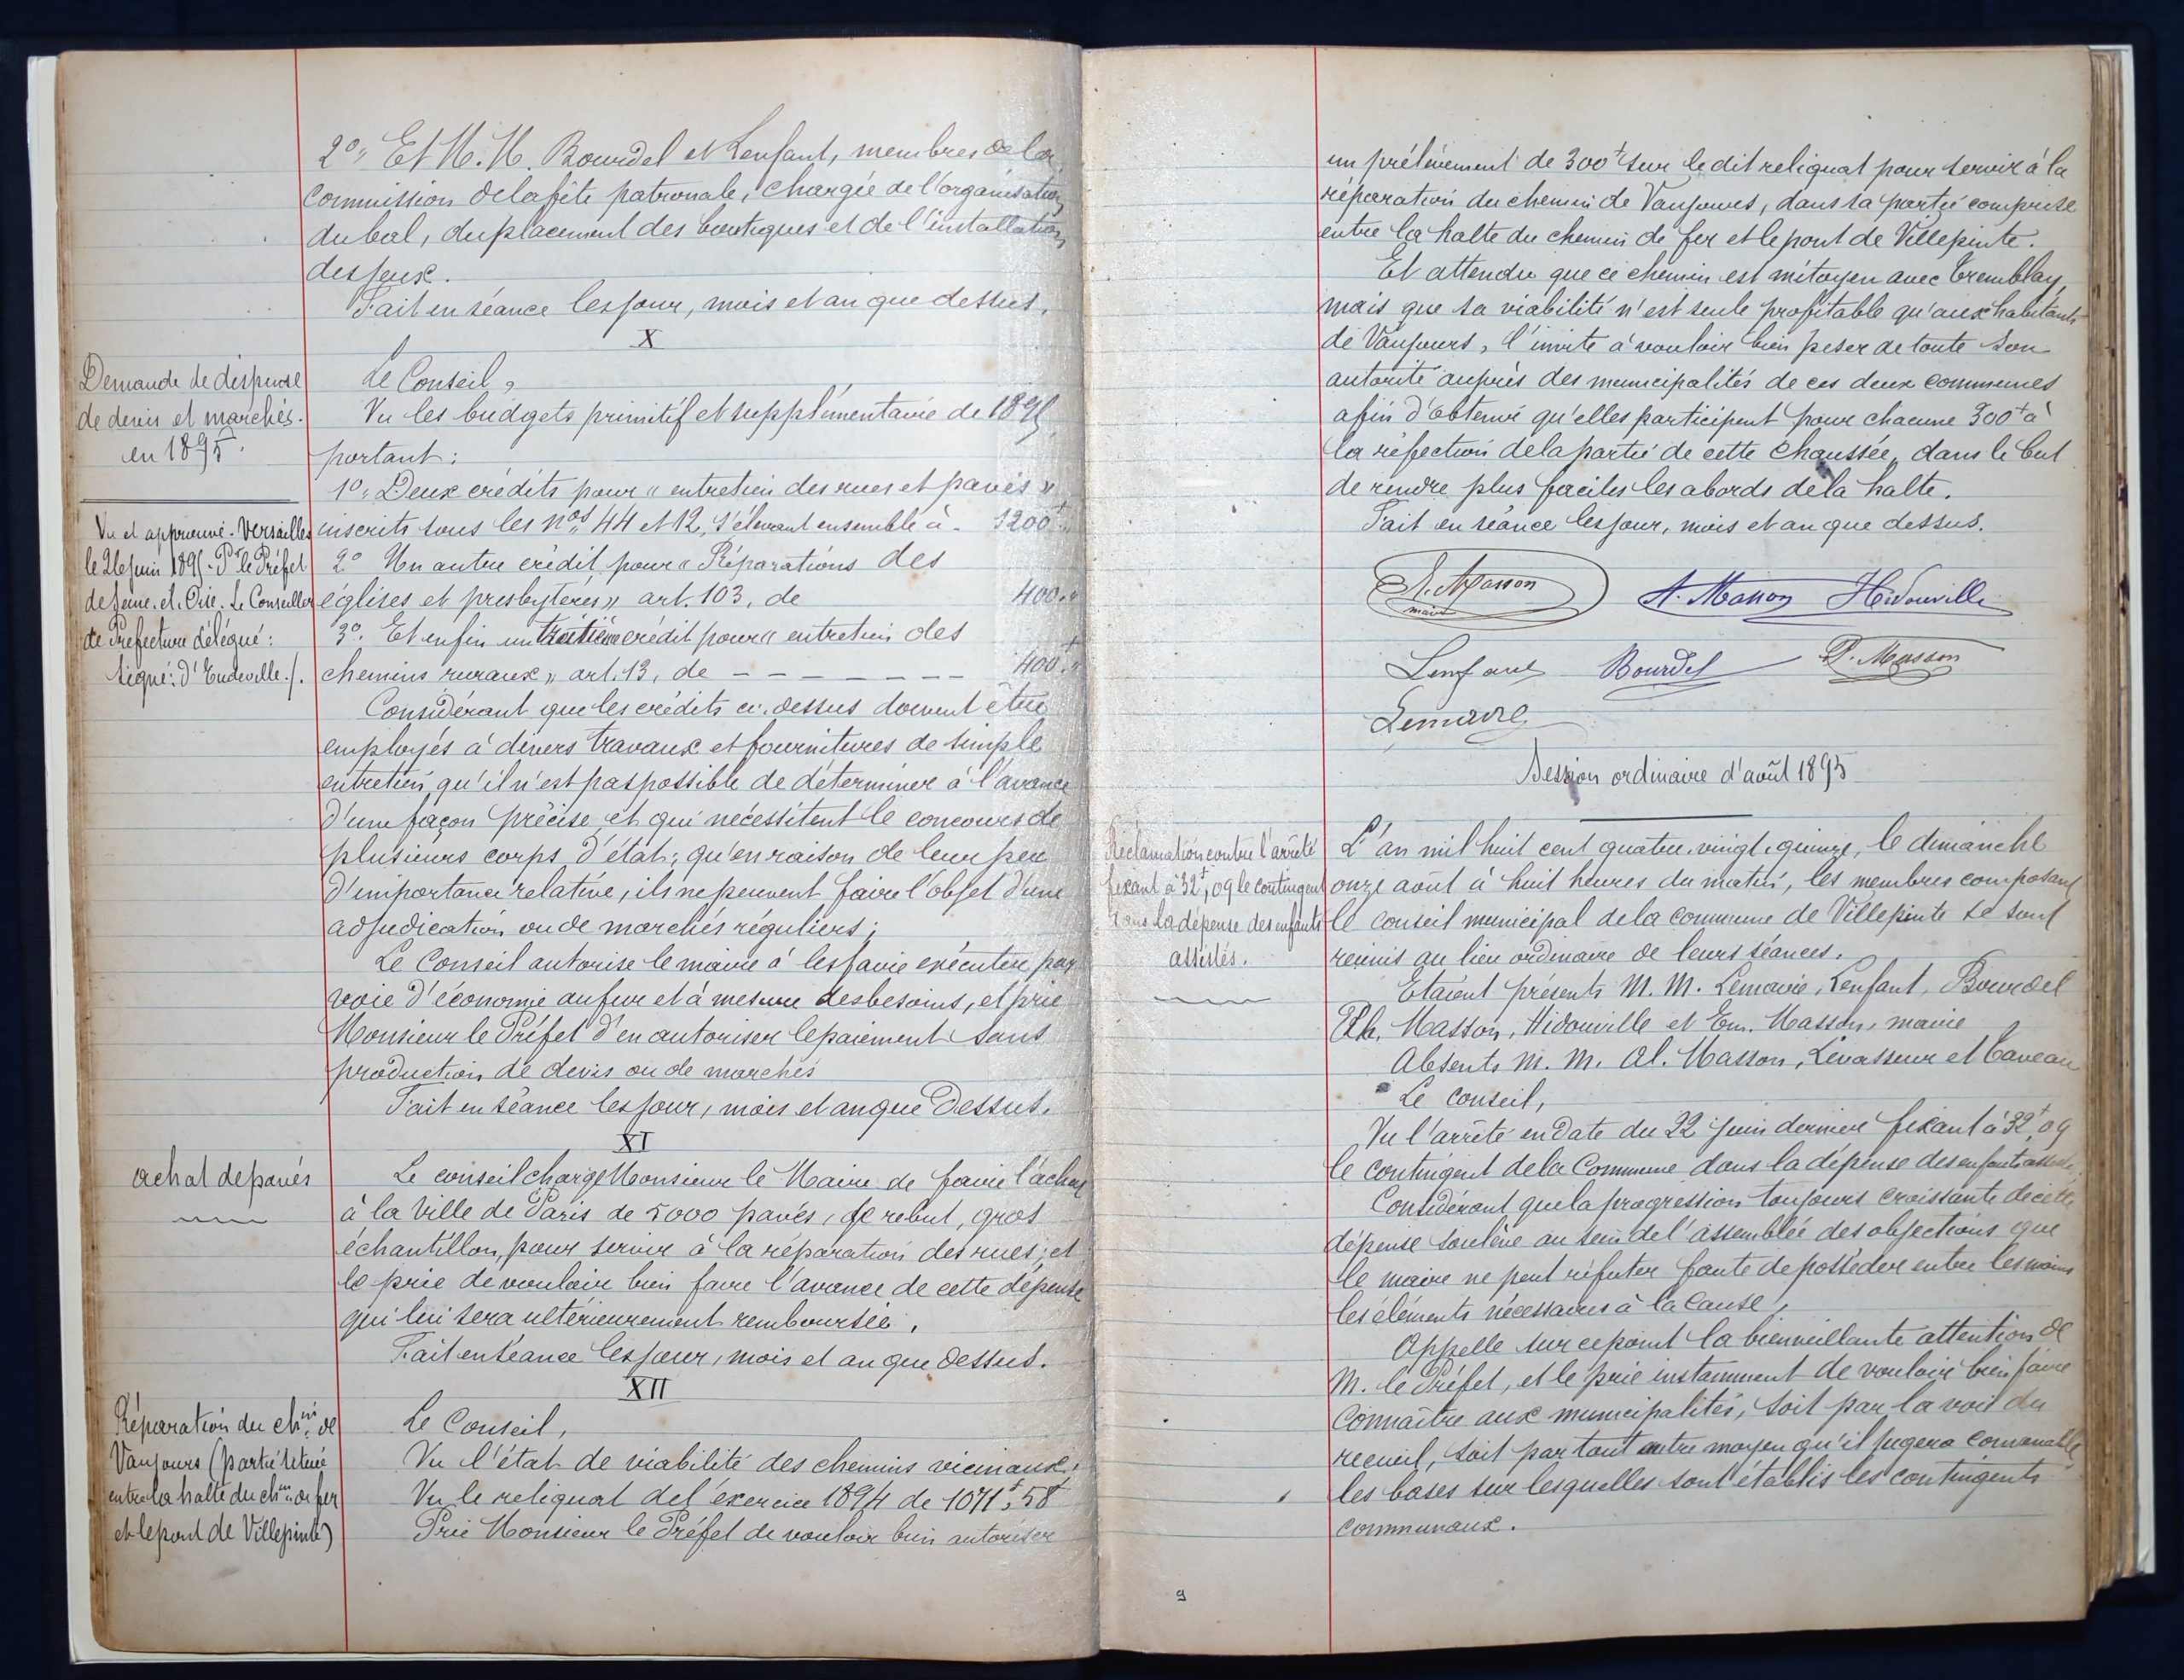 2°" Et M.M. Bourdel et Lenfant, membres de la
commission de la fête patronale, chargée de l'organisation
du bal, du placement des boutiques et de l'installation
des jeux.
Fait en séance les jour, mois et an que dessus.
X
Demande de dispense
de devis et marchés.
en 1895.
Le Conseil,
Vu les budgets primitif et supplémentaire de 1895
portant:
1°" Deux crédits pour "entretien des rues et pavés"
inscrits sous les nos 44 et 12, s'élevant ensemble à - 1200f"
2° Un autre crédit pour "Réparations des
églises et presbytères" art. 103, de 400."
3°. Et enfin un troisième crédit pour "entretien des
chemins ruraux" art. 13, de - - - - - - - - 400f."
Vu et approuvé. Versailles
le 26 juin 1895. Pr le Préfet
de Seine-et-Oise. Le Conseiller
de Préfecture délégué:
Signé: d'Eudeville./.
Considérant que les crédits ci-dessus doivent être
employés à divers travaux et fournitures de simple
entretien, qu'il n'est pas possible de déterminer à l'avance
d'une façon précise, et qui nécessitent le concours de
plusieurs corps d'état; qu'en raison de leur peu
d'importance relative, ils ne peuvent faire l'objet d'une
adjudication ou de marchés réguliers;
Le Conseil autorise le maire à les faire exécuter par
voie d'économie au fur et à mesure des besoins, et prie
Monsieur le Préfet d'en autoriser le paiement sans
production de devis ou de marchés
Fait en séance les jour, mois et an que dessus.
XI
achat de pavés
Le conseil charge Monsieur le Maire de faire l'achat
à la Ville de Paris de 5000 pavés, de rebut, gros
échantillon, pour servir à la réparation des rues; et
le prie de vouloir bien faire l'avance de cette dépense
qui lui sera ultérieurement remboursée.
Fait en séance les jour, mois et an que dessus.
XII
Réparation du chin de
Vaujours (partie située
entre la halte du chin de fer
et le pont de Villepinte)
Le Conseil,
Vu l'état de viabilité des chemins vicinaux,
Vu le reliquat de l'exercice 1894 de 1071f,58
Prie Monsieur le Préfet de vouloir bien autoriser
un prélèvement de 300f sur le dit reliquat pour servir à la
réparation du chemin de Vaujours, dans sa partie comprise
entre la halte du chemin de fer et le pont de Villepinte.
Et attendu que ce chemin est mitoyen avec Tremblay,
mais que sa viabilité n'est seule profitable qu'aux habitants
de Vaujours, l'invite à vouloir bien peser de toute son
autorité auprès des municipalités de ces deux communes
afin d'obtenir qu'elles participent pour chacune 300f à
la réfection de la partie de cette chaussée, dans le but
de rendre plus faciles les abords de la halte.
Fait en séance les jour, mois et an que dessus.
E. Masson
maire
A. Masson Hidouville
Lenfant Bourdel P. Masson
Lemaire
Session ordinaire d'août 1895
Réclamation contre l'arrêté
fixant à 32f,09 le contingent
dans la dépense des enfants
assistés.
L'an mil huit cent quatre-vingt-quinze, le dimanche
onze août à huit heures du matin, les membres composant
le conseil municipal de la commune de Villepinte se sont
réunis au lieu ordinaire de leurs séances.
Etaient présents M. M. Lemaire, Lenfant, Bourdel
Ph. Masson, Hidouville et Em. Masson, maire
Absents M. M. Al. Masson, Levasseur et Caveau
Le conseil,
Vu l'arrêté en date du 22 juin dernier fixant à 32f,09
le contingent de la Commune dans la dépense des enfants assistés
Considérant que la progression toujours croissante de cette
dépense soulève au sein de l'assemblée des objections que
le maire ne peut réfuter faute de posséder entre les mains
les éléments nécessaires à la cause,
Appelle sur ce point la bienveillante attention de
M. le Préfet, et le prie instamment de vouloir bien faire
connaître aux municipalités, soit par la voie du
recueil, soit par tout autre moyen qu'il jugera convenable
les bases sur lesquelles sont établis les contingents
communaux.
9